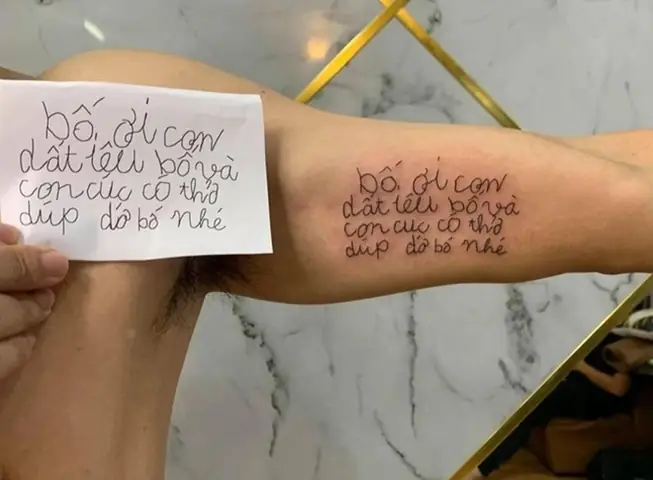 bố ơi con
dất lêu bố và
con cúc có thơ
dúp dớ bố nhé
bố ơi con
dất lêu bố và
con cúc có thơ
dúp dớ bố nhé